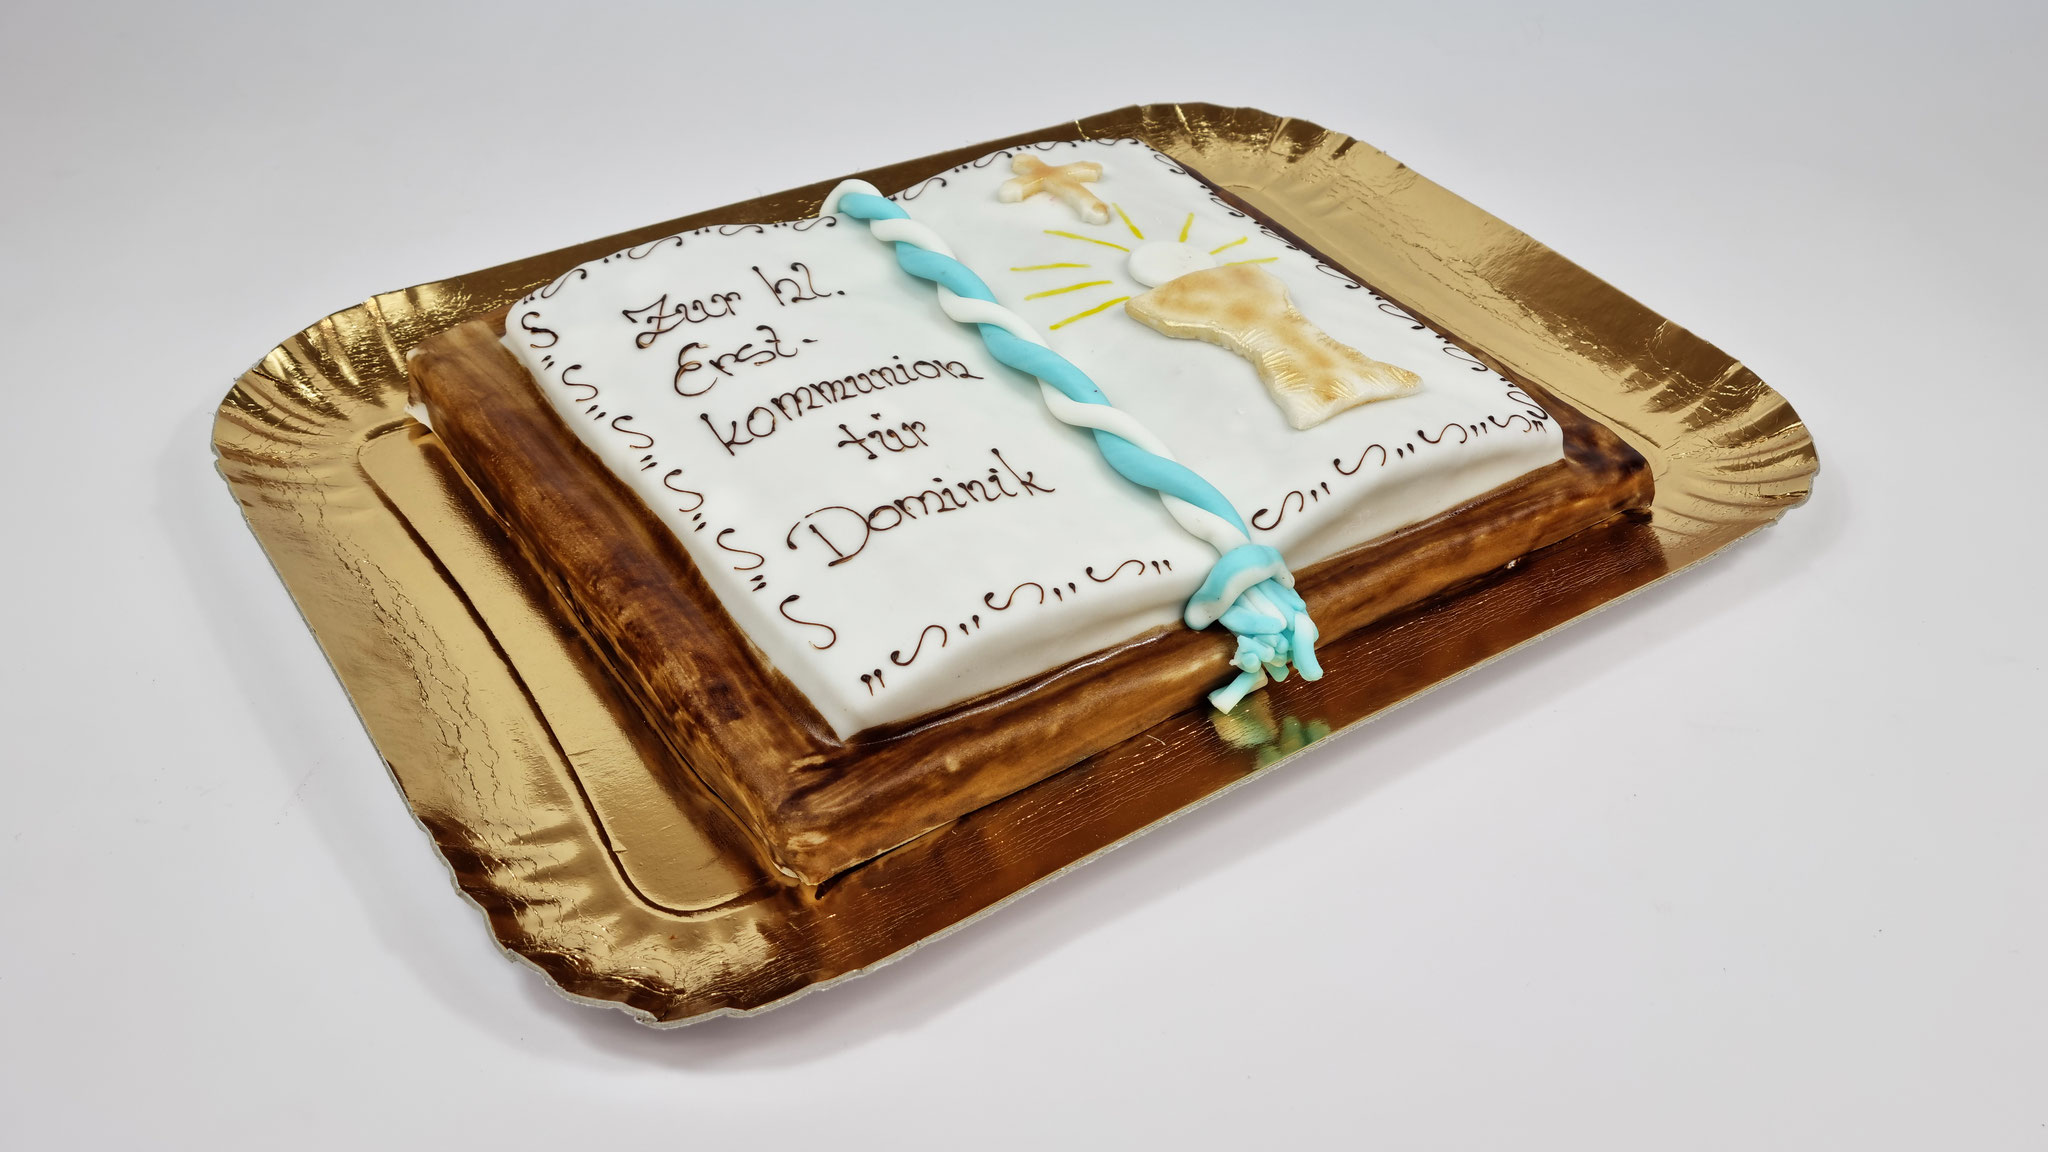 Zur hl.
Erst-
kommunion
für
Dominik